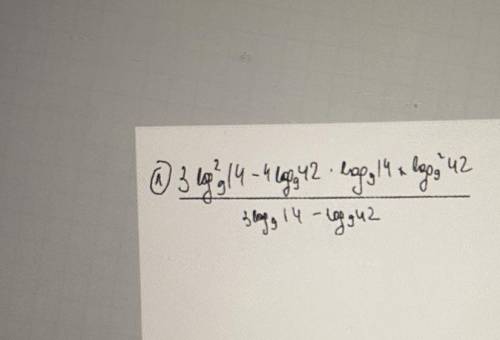 ① 3 log²₉14 - 4 log₉42 · log₉14 + log₉²42
3 log₉14 - log₉42